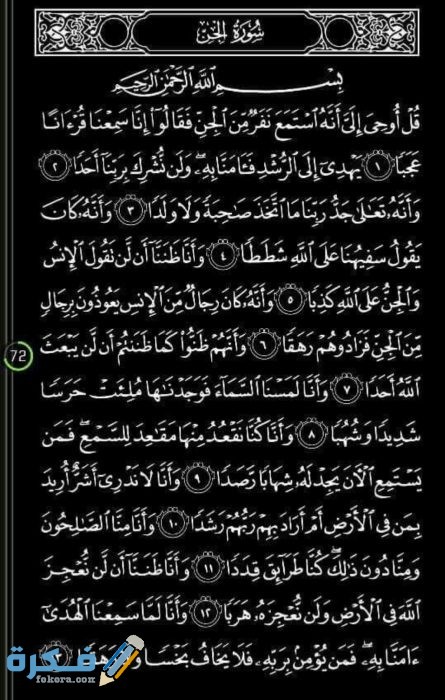 سُورَةُ الجِنِّ
بِسْمِ اللَّهِ الرَّحْمَٰنِ الرَّحِيمِ
قُلْ أُوحِىَ إِلَىَّ أَنَّهُ ٱسْتَمَعَ نَفَرٌ مِّنَ ٱلْجِنِّ فَقَالُوٓا۟ إِنَّا سَمِعْنَا قُرْءَانًا
عَجَبًا ١ يَهْدِىٓ إِلَى ٱلرُّشْدِ فَـَٔامَنَّا بِهِۦ ۖ وَلَن نُّشْرِكَ بِرَبِّنَآ أَحَدًا ٢
وَأَنَّهُۥ تَعَٰلَىٰ جَدُّ رَبِّنَا مَا ٱتَّخَذَ صَٰحِبَةً وَلَا وَلَدًا ٣ وَأَنَّهُۥ كَانَ
يَقُولُ سَفِيهُنَا عَلَى ٱللَّهِ شَطَطًا ٤ وَأَنَّا ظَنَنَّآ أَن لَّن تَقُولَ ٱلْإِنسُ
وَٱلْجِنُّ عَلَى ٱللَّهِ كَذِبًا ٥ وَأَنَّهُۥ كَانَ رِجَالٌ مِّنَ ٱلْإِنسِ يَعُوذُونَ بِرِجَالٍ
مِّنَ ٱلْجِنِّ فَزَادُوهُمْ رَهَقًا ٦ وَأَنَّهُمْ ظَنُّوا۟ كَمَا ظَنَنتُمْ أَن لَّن يَبْعَثَ
72
ٱللَّهُ أَحَدًا ٧ وَأَنَّا لَمَسْنَا ٱلسَّمَآءَ فَوَجَدْنَٰهَا مُلِئَتْ حَرَسًا
شَدِيدًا وَشُهُبًا ٨ وَأَنَّا كُنَّا نَقْعُدُ مِنْهَا مَقَٰعِدَ لِلسَّمْعِ ۖ فَمَن
يَسْتَمِعِ ٱلْـَٔانَ يَجِدْ لَهُۥ شِهَابًا رَّصَدًا ٩ وَأَنَّا لَا نَدْرِىٓ أَشَرٌّ أُرِيدَ
بِمَن فِى ٱلْأَرْضِ أَمْ أَرَادَ بِهِمْ رَبُّهُمْ رَشَدًا ١٠ وَأَنَّا مِنَّا ٱلصَّٰلِحُونَ
وَمِنَّا دُونَ ذَٰلِكَ ۖ كُنَّا طَرَآئِقَ قِدَدًا ١١ وَأَنَّا ظَنَنَّآ أَن لَّن نُّعْجِزَ
ٱللَّهَ فِى ٱلْأَرْضِ وَلَن نُّعْجِزَهُۥ هَرَبًا ١٢ وَأَنَّا لَمَّا سَمِعْنَا ٱلْهُدَىٰٓ
ءَامَنَّا بِهِۦ ۖ فَمَن يُؤْمِنۢ بِرَبِّهِۦ فَلَا يَخَافُ بَخْسًا وَلَا رَهَقًا ١٣
فكرة
fokera.com